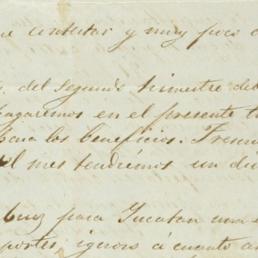 contestar y muy pocos
del segundo trimestre deb
pagaremos en el presente t
para los beneficios. Fresn
el mes tendremos un di
Cruz para Yucatan una
portes, ignoro á cuanto as